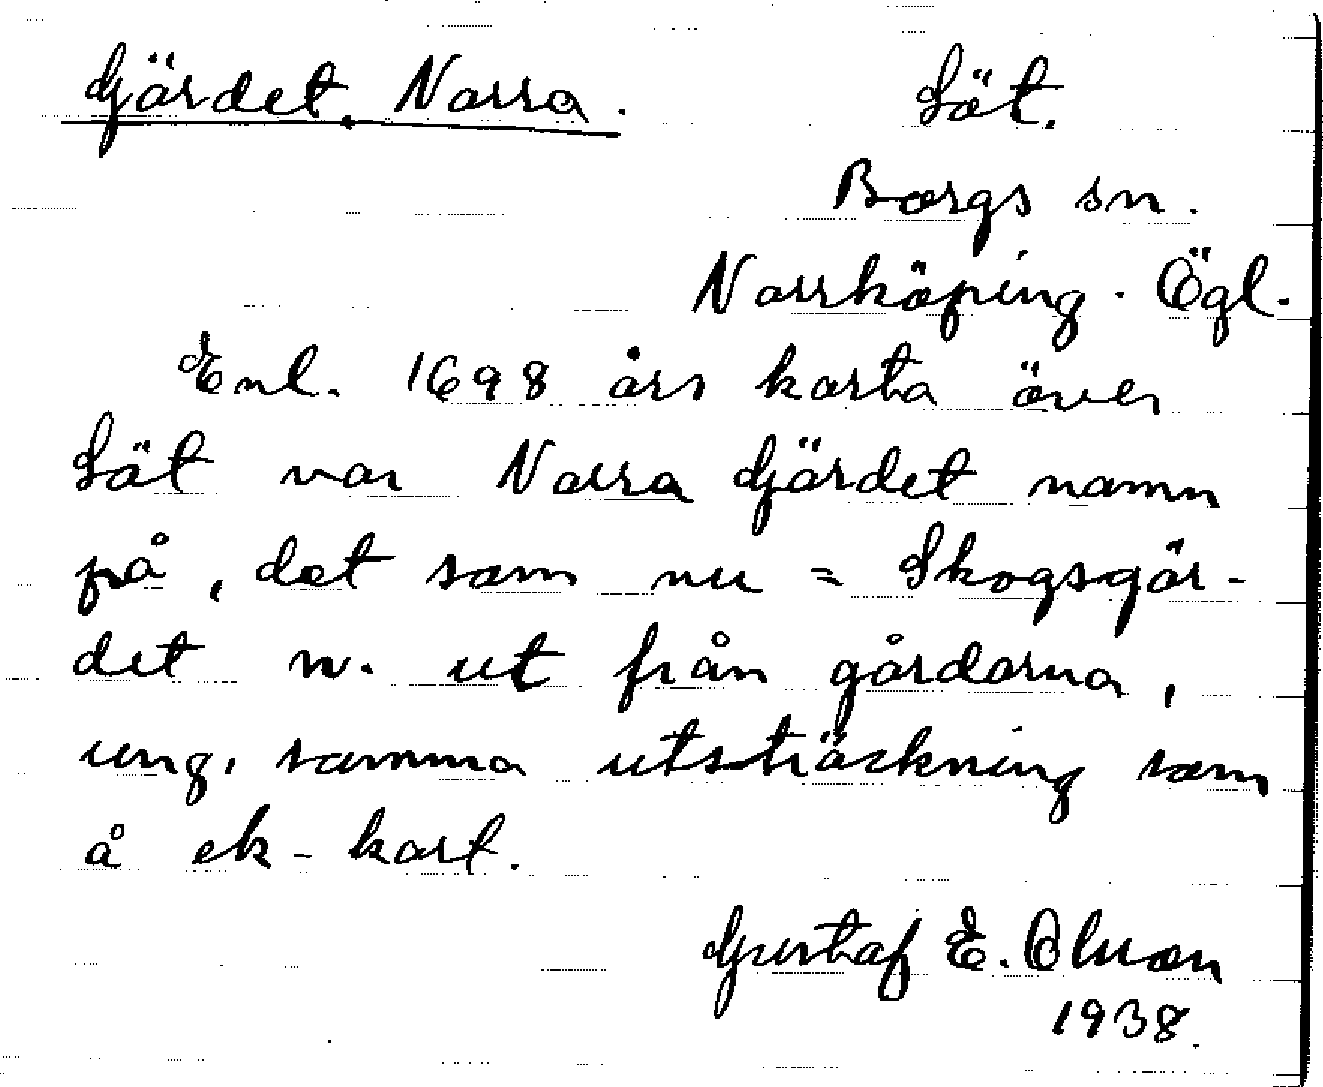 Gärdet, Norra. Löt.
Borgs sn.
Norrköping. Ögl.
Enl. 1698 års karta över
Löt var Norra Gärdet namn
på, det som nu = Skogsgär-
det n. ut från gårdarna,
ung. samma utsträckning som
å ek-kart.
Gustaf E. Olsson
1938.